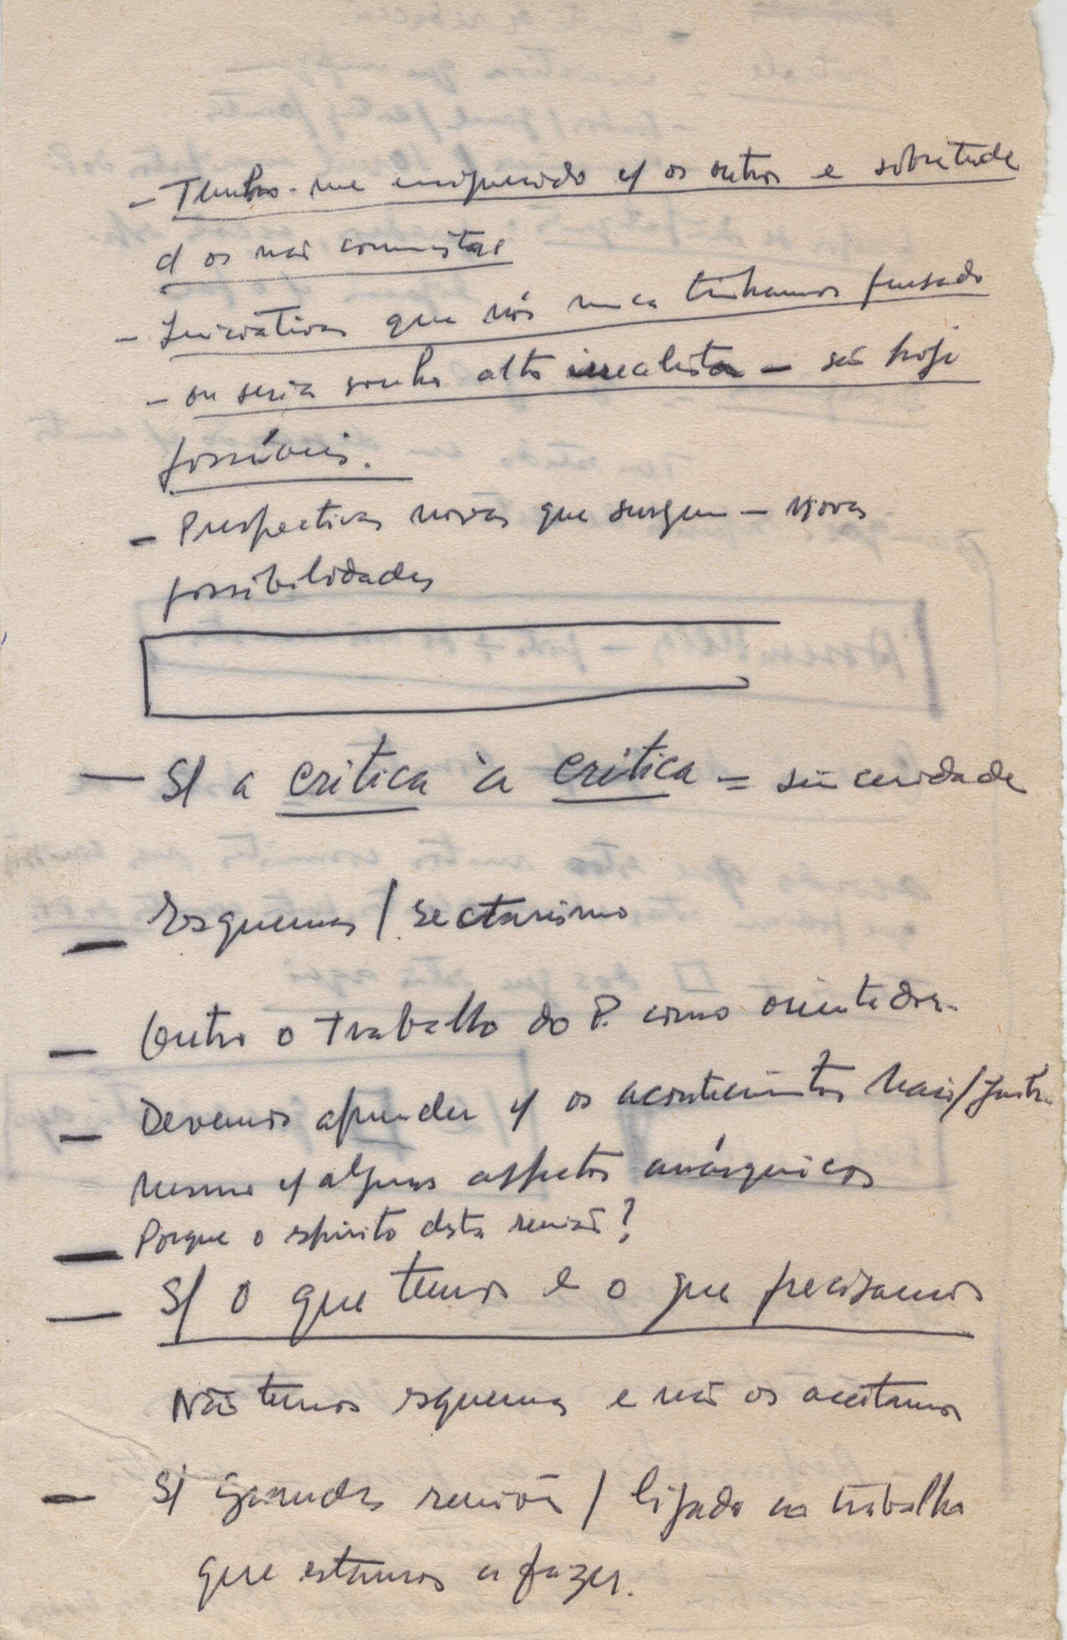 - Tenho-me enriquecido c/ os outros e sobretudo
c/ os não comunistas
- Iniciativas que nós nunca tínhamos pensado
- ou seria sonho alto irrealista - são hoje
possíveis.
- Perspectivas novas que surgem - novas
possibilidades
- S/ a crítica à crítica = sinceridade
- Esquemas / sectarismo
- Outro o trabalho do P. como orientador.
- Devemos aprender c/ os acontecimentos
mesmo c/ alguns aspectos anárquicos
- Porque o espírito desta reunião?
- S/ o que temos e o que precisamos
Não temos esquemas e não os aceitamos
- S/ grandes reuniões / ligado ao trabalho
que estamos a fazer.